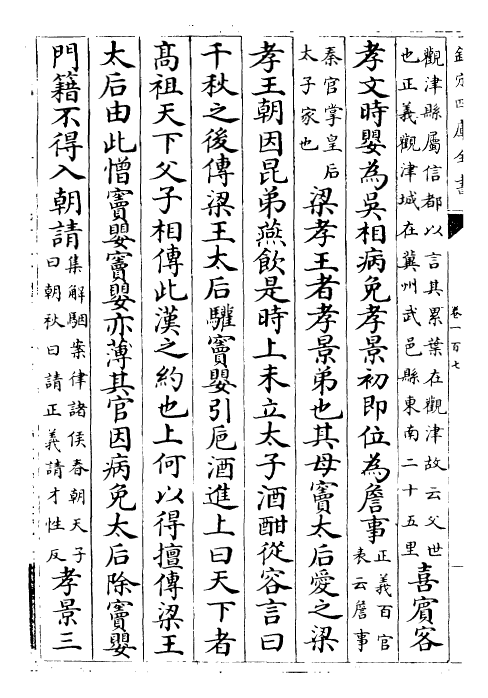 欽定四庫全書
卷一百七
觀津縣屬信都以言其累葉在觀津故云父世
也正義觀津城在冀州武邑縣東南二十五里
喜賓客
孝文時嬰為吳相病免孝景初即位為詹事
正義百官
表云詹事
秦官掌皇后
太子家也
梁孝王者孝景弟也其母竇太后愛之梁
孝王朝因昆弟燕飲是時上未立太子酒酣從容言曰
千秋之後傳梁王太后驩竇嬰引巵酒進上曰天下者
髙祖天下父子相傳此漢之約也上何以得擅傳梁王
太后由此憎竇嬰竇嬰亦薄其官因病免太后除竇嬰
門籍不得入朝請
集解駰案律諸侯春朝天子
曰朝秋曰請正義請才性反
孝景三